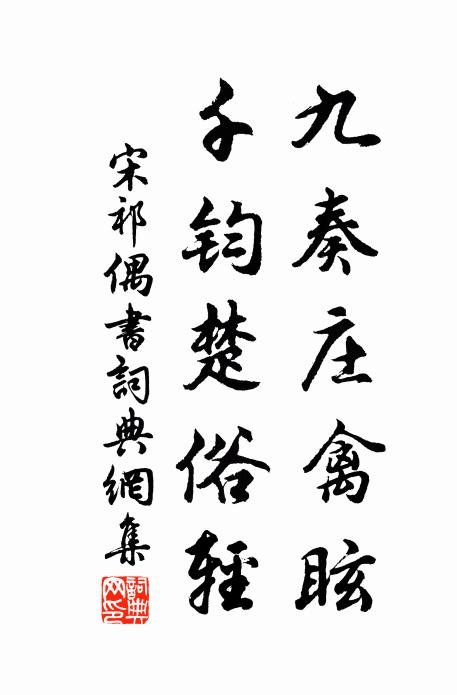 九奏庄禽眩
千钧楚俗輕
宋祁偶書詞典網集
詞典網印